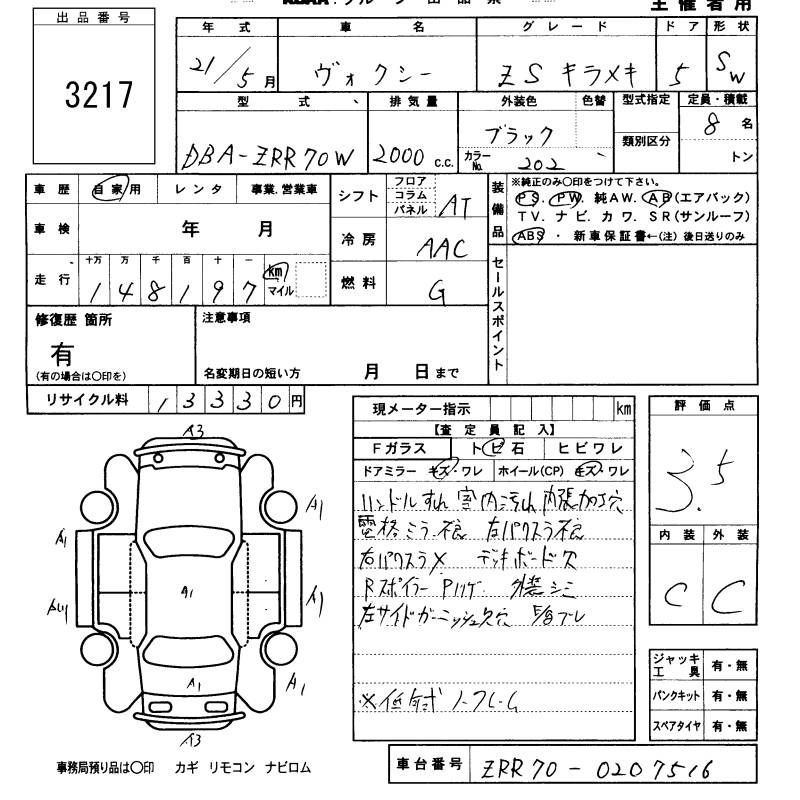 出品番号
3217
主催者用
年式 車名 グレード ドア 形状
21/5月 ヴォクシー ZS キラメキ 5 SW
型式 排気量 外装色 色替 型式指定 定員・積載
DBA-ZRR70W 2000 c.c. ブラック 類別区分 8名
カラーNo. 202 トン
車歴 自家用 レンタ 事業.営業車
車検 年 月
走行 十万 万 千 百 十 一 km
148197 マイル
シフト フロア コラム パネル AT
冷房 AAC
燃料 G
装備品 ※純正のみ○印をつけて下さい。
PS. PW. 純AW. AB(エアバック)
TV. ナビ. カワ. SR(サンルーフ)
ABS ・ 新車保証書←(注) 後日送りのみ
セールスポイント
修復歴 箇所
有
(有の場合は○印を)
注意事項
名変期日の短い方 月 日まで
リサイクル料 13330円
現メーター指示 km
【査定員記入】
Fガラス トビ石 ヒビワレ
ドアミラー キズ・ワレ ホイール(CP) キズ・ワレ
ハンドルすれ 室内汚れ 内張加工穴
電格ミラー不良 左パワスラ不良
右パワスラ× デッキボード欠
Rスポイラー Pハゲ
左サイドガーニッシュ欠穴
ノーフレーム
評価点
3.5
内装 外装
C C
ジャッキ工具 有・無
パンクキット 有・無
スペアタイヤ 有・無
A3
A1
A1
A1
A1
A1
A1
A3
事務局預り品は○印 カギ リモコン ナビロム
車台番号 ZRR70-0207516